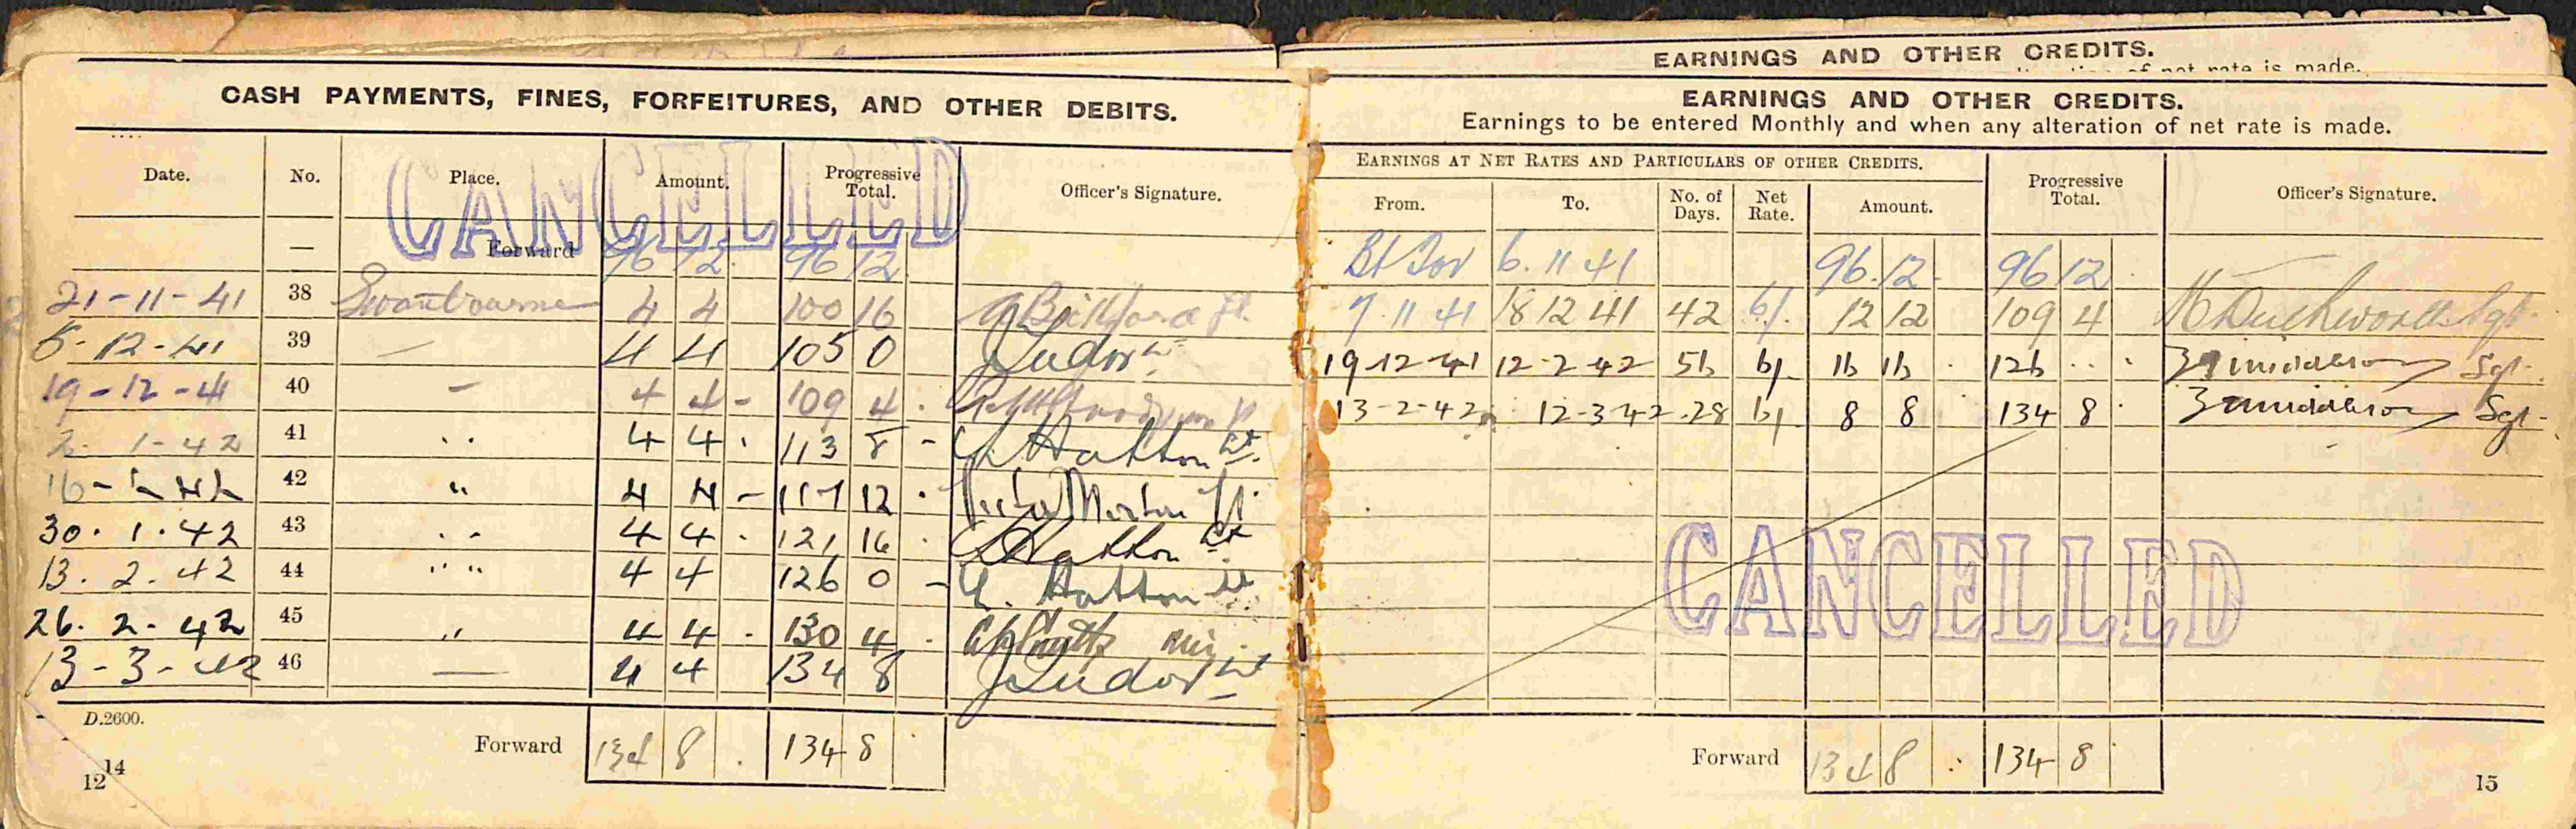 EARNINGS AND OTHER CREDITS.
of net rate is made.
CASH PAYMENTS, FINES, FORFEITURES, AND OTHER DEBITS.
Date. No. Place. Amount. Progressive Total. Officer's Signature.
CANCELLED
— Forward 96 12 . 96 12
21-11-41 38 Swanbourne 4 4 100 16
5-12-41 39 — 4 4 105 0 J Tudor Lt
19-12-41 40 — 4 4 - 109 4 .
2. 1-42 41 .. 4 4 . 113 8 - Hatton Lt.
16-1-42 42 " 4 4 - 117 12 . Morton
30.1.42 43 .. 4 4 . 121 16 . Hatton Lt
13.2.42 44 " " 4 4 126 0 - Hatton Lt
26.2.42 45 " 4 4 . 130 4 .
13-3-42 46 — 4 4 134 8 J Tudor Lt
D.2600.
Forward 134 8 . 134 8 .
12 14
EARNINGS AND OTHER CREDITS.
Earnings to be entered Monthly and when any alteration of net rate is made.
EARNINGS AT NET RATES AND PARTICULARS OF OTHER CREDITS.
From. To. No. of Days. Net Rate. Amount. Progressive Total. Officer's Signature.
Bt For 6.11 41 96.12- 96 12 .
7.11 41 18 12 41 42 6/. 12 12 109 4 Duckworth Sgt
19-12-41 12-2-42 56 6/- 16 16 . 126 .. . Middleton Sgt.
13-2-42 12-3-42 28 6/- 8 8 134 8 . Middleton Sgt-
CANCELLED
Forward 134 8 . 134 8 .
15